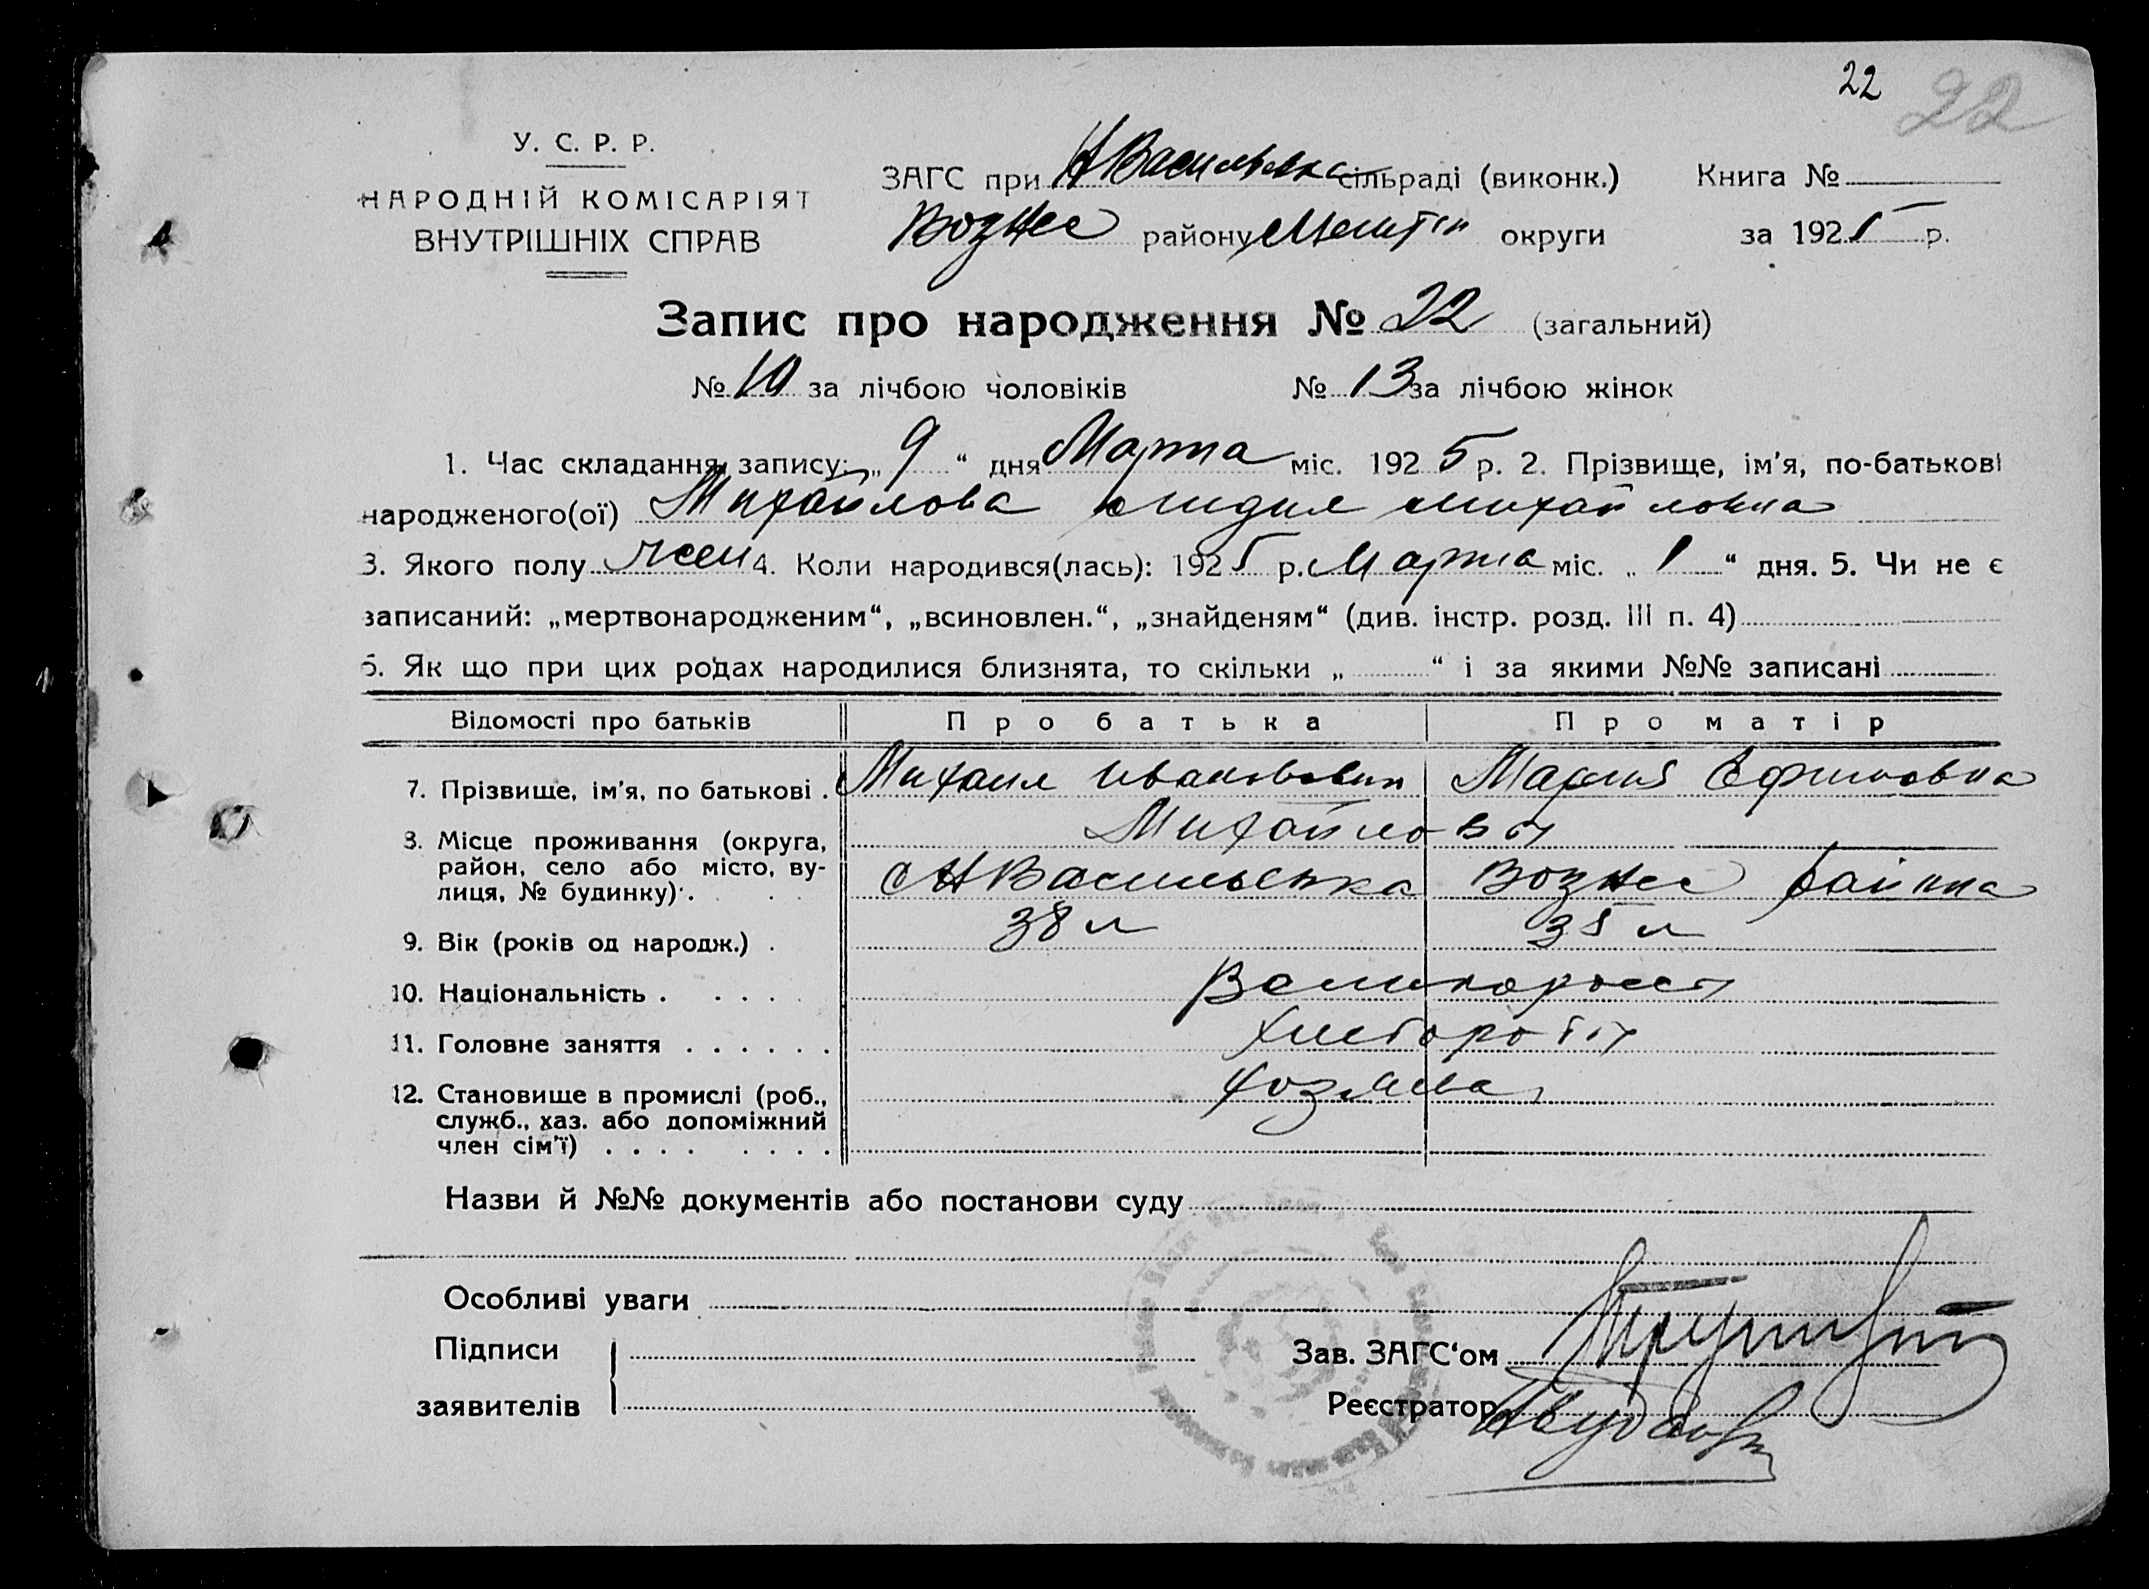 22 22
У. С. Р. Р.
НАРОДНІЙ КОМІСАРІЯТ
ВНУТРІШНІХ СПРАВ
ЗАГС при Н Васильевка сільраді (виконк.) Книга №
Вознес району округи за 1925 р.
Запис про народження № 22 (загальний)
№ 10 за лічбою чоловіків № 13 за лічбою жінок
1. Час складання запису: „ 9 “ дня Марта міс. 1925 р. 2. Прізвище, ім'я, по-батькові
народженого(ої) Михайлова Лидия Михайловна
3. Якого полу жен 4. Коли народився(лась): 1925 р. Марта міс. „ 1 “ дня. 5. Чи не є
записаний: „мертвонародженим“, „всиновлен.“, „знайденям“ (див. інстр. розд. III п. 4)
6. Як що при цих родах народилися близнята, то скільки „ “ і за якими №№ записані
Відомості про батьків Про батька Про матір
7. Прізвище, ім'я, по батькові . Михаил Иванович Мария Ефимовна
Михайловы
8. Місце проживання (округа,
район, село або місто, ву-
лиця, № будинку) . Н Васильевка Вознес района
9. Вік (років од народж.) . 38 л 35 л
10. Національність . . . . Великоросы
11. Головне заняття . . . . . . Хлебороты
12. Становище в промислі (роб.,
служб., хаз. або допоміжний
член сім'ї) . . . . . . . . Хозяева
Назви й №№ документів або постанови суду
Особливі уваги
Підписи
заявителів
Зав. ЗАГС‘ом
Реєстратор